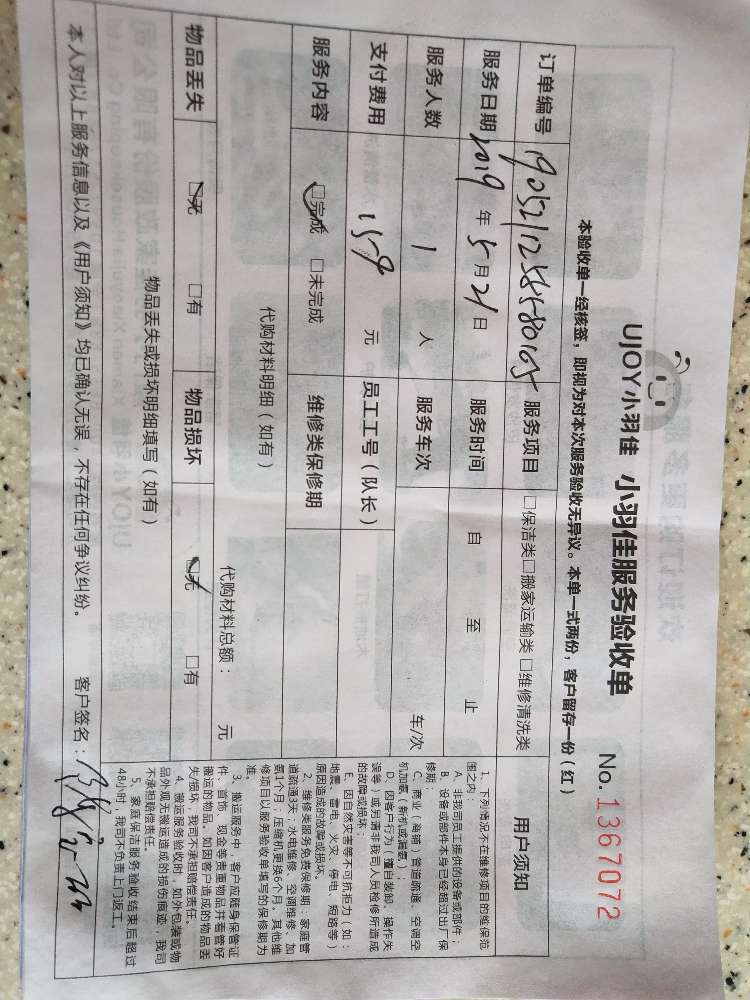 UJOY小羽佳 小羽佳服务验收单 No.1367072
本验收单一经核签，即视为对本次服务验收无异议。本单一式两份，客户留存一份（红）
订单编号 服务项目 □保洁类□搬家运输类□维修清洗类
服务日期 2019年5月21日 服务时间 自 至 止
服务人数 1 人 服务车次 车/次
支付费用 159 元 员工工号（队长）
服务内容 □完成 □未完成 维修类保修期
代购材料明细（如有）
代购材料总额： 元
物品丢失 □无 □有 物品损坏 □无 □有
物品丢失或损坏明细填写（如有）
本人对以上服务信息以及《用户须知》均已确认无误，不存在任何争议纠纷。 客户签名：
用户须知
1、下列情况不在维修项目的维保范
围之内：
A、非我司员工提供的设备或部件；
B、设备或部件本身已经超过出厂保
修期；
C、商业（商铺）管道疏通、空调空
机加氨（新机或漏氨）；
D、因客户行为（擅自装卸、操作失
误等）或另请非我司人员检修所造成
的故障或损坏；
E、因自然灾害等不可抗拒力（如：
地震、雷电、火灾、停电、短路等）
原因造成的故障或损坏。
2、维修类服务免费保修期：家庭管
道疏通3天；水电维修、空调维修、加
氨1个月；压缩机更换6个月。其他维
修项目以服务验收单填写的保修期为
准。
3、搬运服务中，客户应随身保管证
件、首饰、现金等贵重物品并看管好
搬运的物品。如因客户造成的物品丢
失/损坏，我司不承担赔偿责任。
4、搬运服务验收时，如外包装或物
品外观无搬运造成的损伤痕迹，我司
不承担赔偿责任。
5、家庭保洁服务验收结束后超过
48小时，我司不负责上门返工。